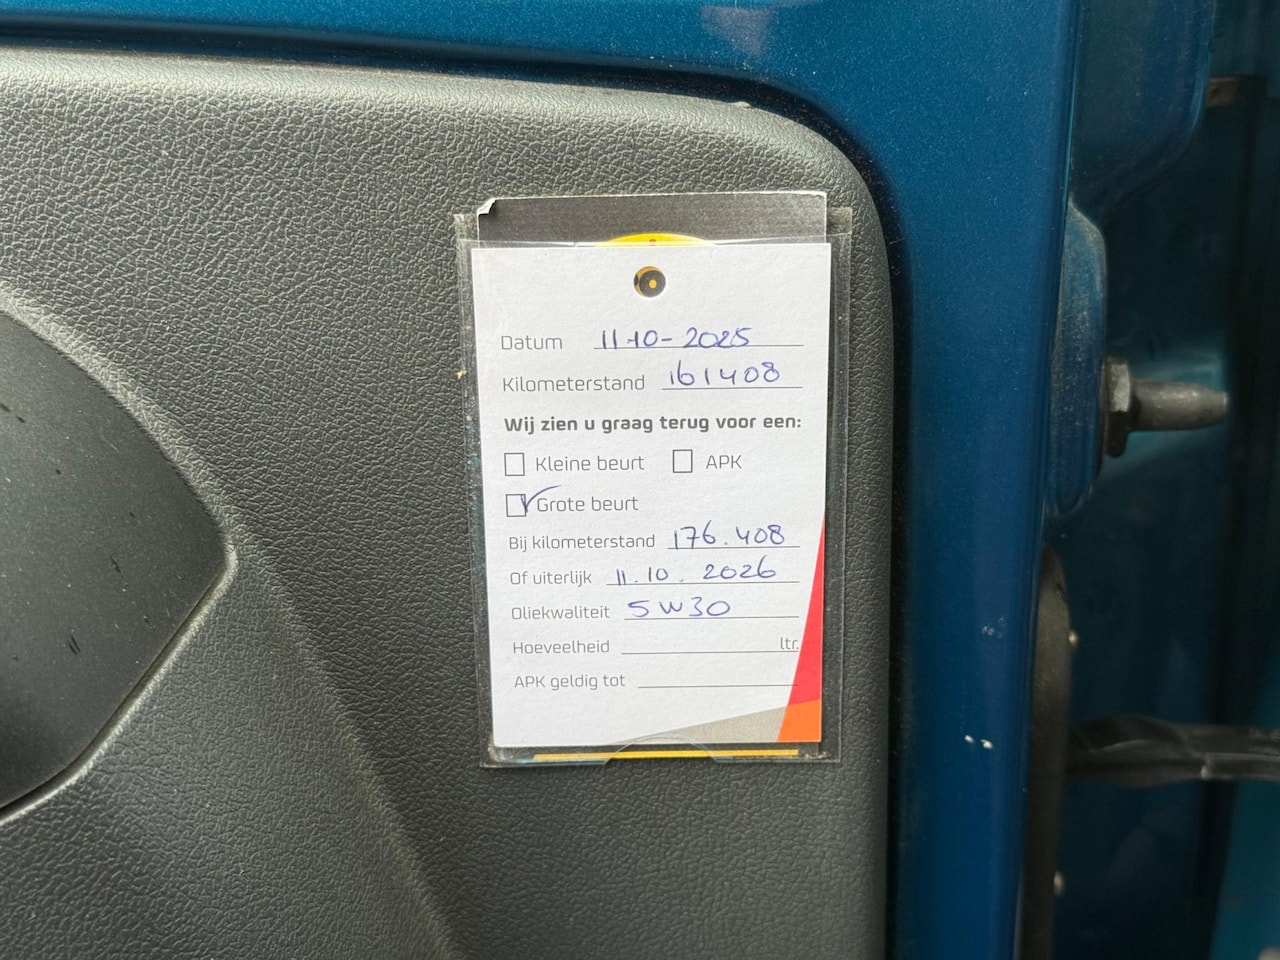 Datum 11-10-2025
Kilometerstand 161408
Wij zien u graag terug voor een:
Kleine beurt APK
Grote beurt
Bij kilometerstand 176.408
Of uiterlijk 11.10.2026
Oliekwaliteit 5W30
Hoeveelheid ltr.
APK geldig tot